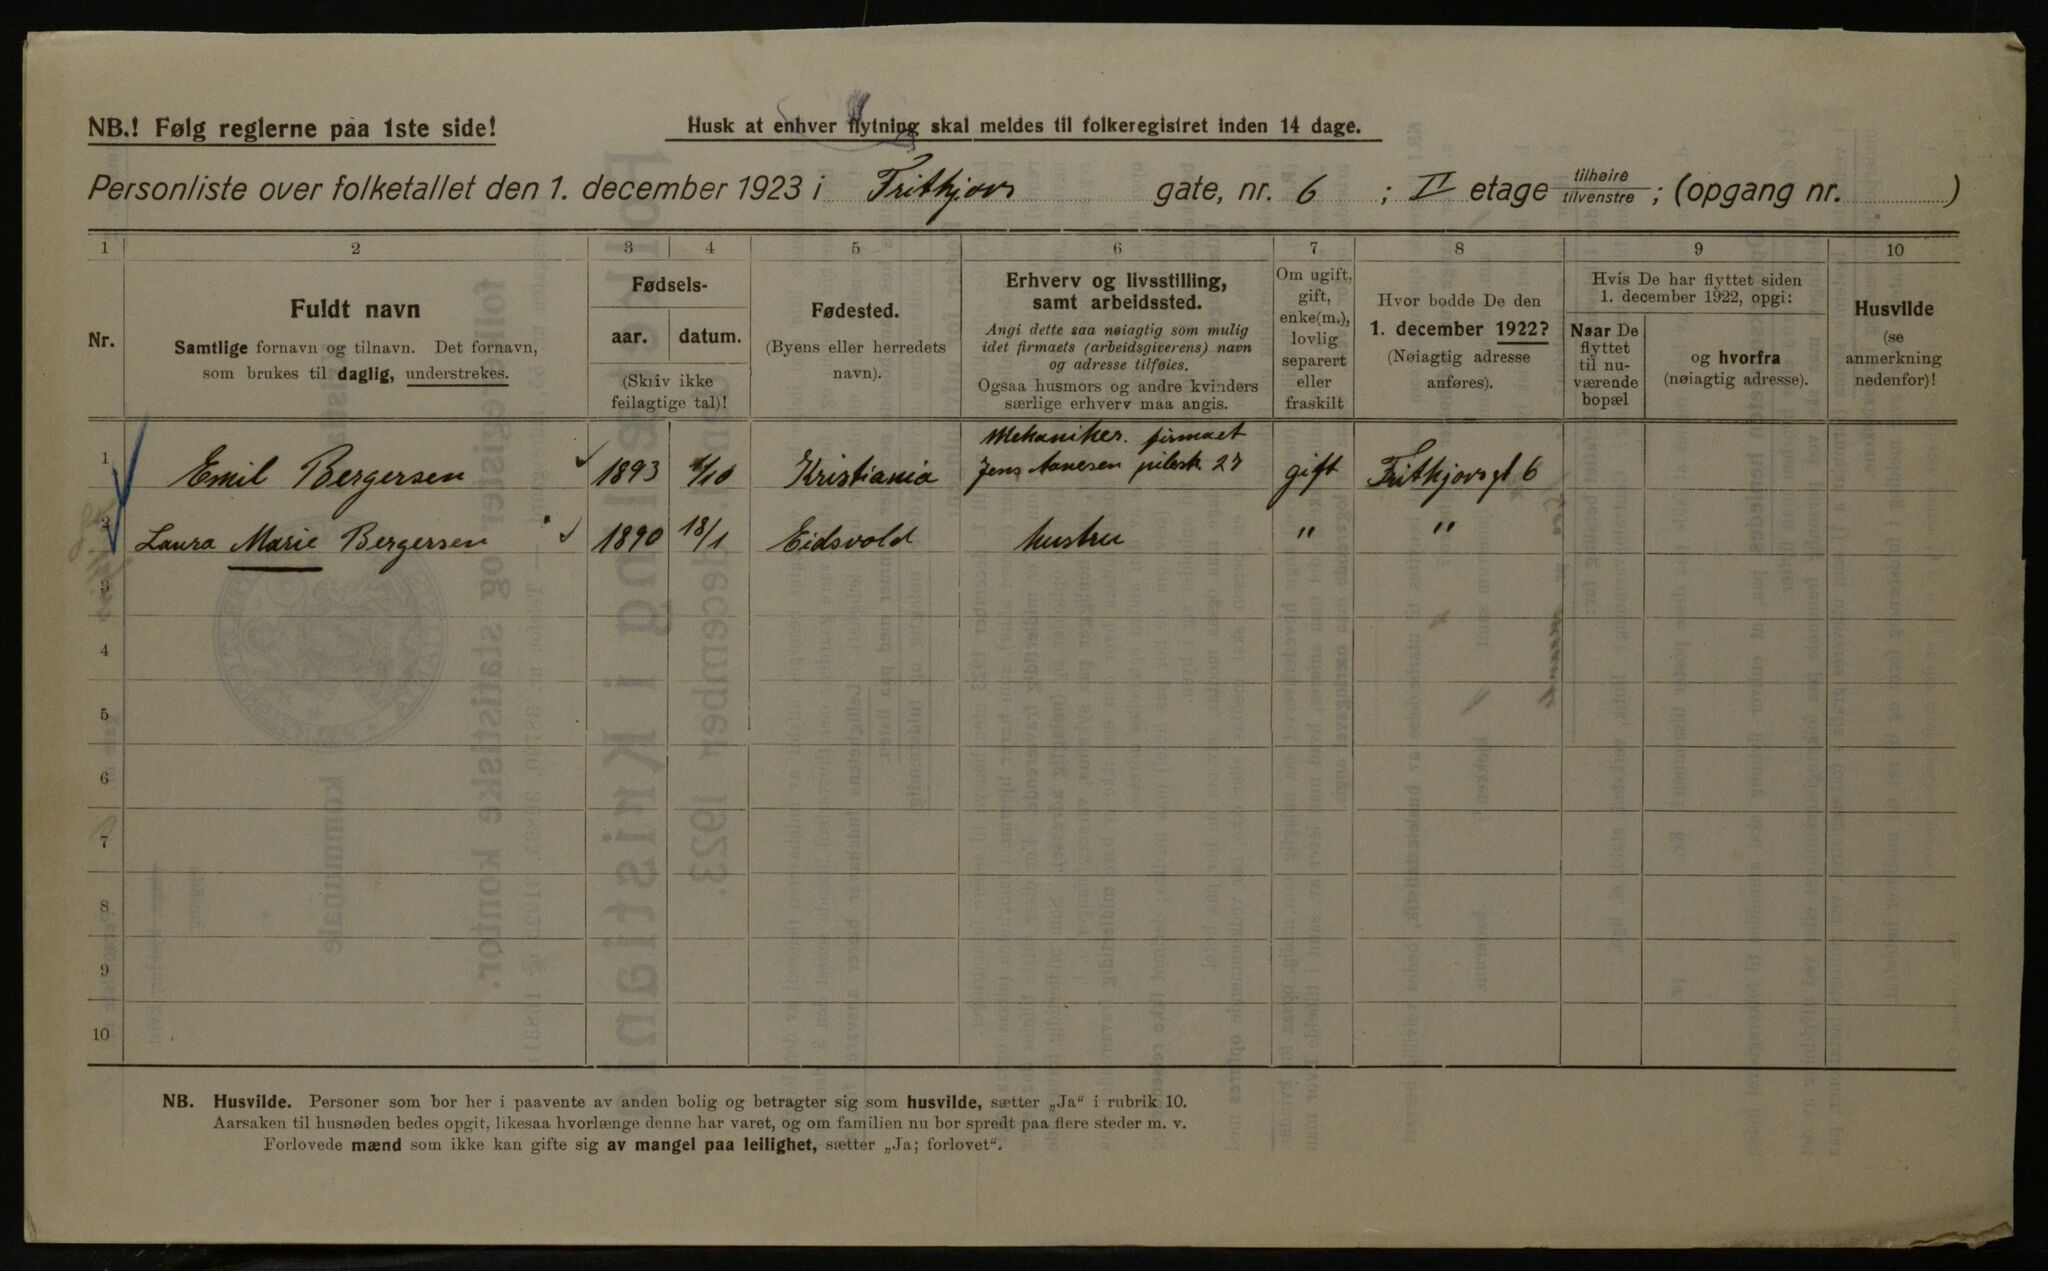 NB.! Følg reglerne paa 1ste side!
Husk at enhver flytning skal meldes til folkeregistret inden 14 dage.
Personliste over folketallet den 1. december 1923 i Frithjovs gate, nr. 6 ; II etage tilhøire tilvenstre ; (opgang nr. )
1 2 3 4 5 6 7 8 9 10
Nr.
Fuldt navn
Samtlige fornavn og tilnavn. Det fornavn,
som brukes til daglig, understrekes.
Fødsels-
aar. datum.
(Skriv ikke
feilagtige tal)!
Fødested.
(Byens eller herredets
navn).
Erhverv og livsstilling,
samt arbeidssted.
Angi dette saa nøiagtig som mulig
idet firmaets (arbeidsgiverens) navn
og adresse tilføies.
Ogsaa husmors og andre kvinders
særlige erhverv maa angis.
Om ugift,
gift,
enke(m.),
lovlig
separert
eller
fraskilt
Hvor bodde De den
1. december 1922?
(Nøiagtig adresse
anføres).
Hvis De har flyttet siden
1. december 1922, opgi:
Naar De
flyttet
til nu-
værende
bopæl
og hvorfra
(nøiagtig adresse).
Husvilde
(se
anmerkning
nedenfor)!
Mekaniker. firmaet
1 Emil Bergersen 1893 /10 Kristiania Jens Aanesen pilestr. 27 gift Frithjovsgt 6
2 Laura Marie Bergersen 1890 18/1 Eidsvold hustru " "
3
4
5
6
7
8
9
10
NB. Husvilde. Personer som bor her i paavente av anden bolig og betragter sig som husvilde, sætter „Ja“ i rubrik 10.
Aarsaken til husnøden bedes opgit, likesaa hvorlænge denne har varet, og om familien nu bor spredt paa flere steder m. v.
Forlovede mænd som ikke kan gifte sig av mangel paa leilighet, sætter „Ja; forlovet“.